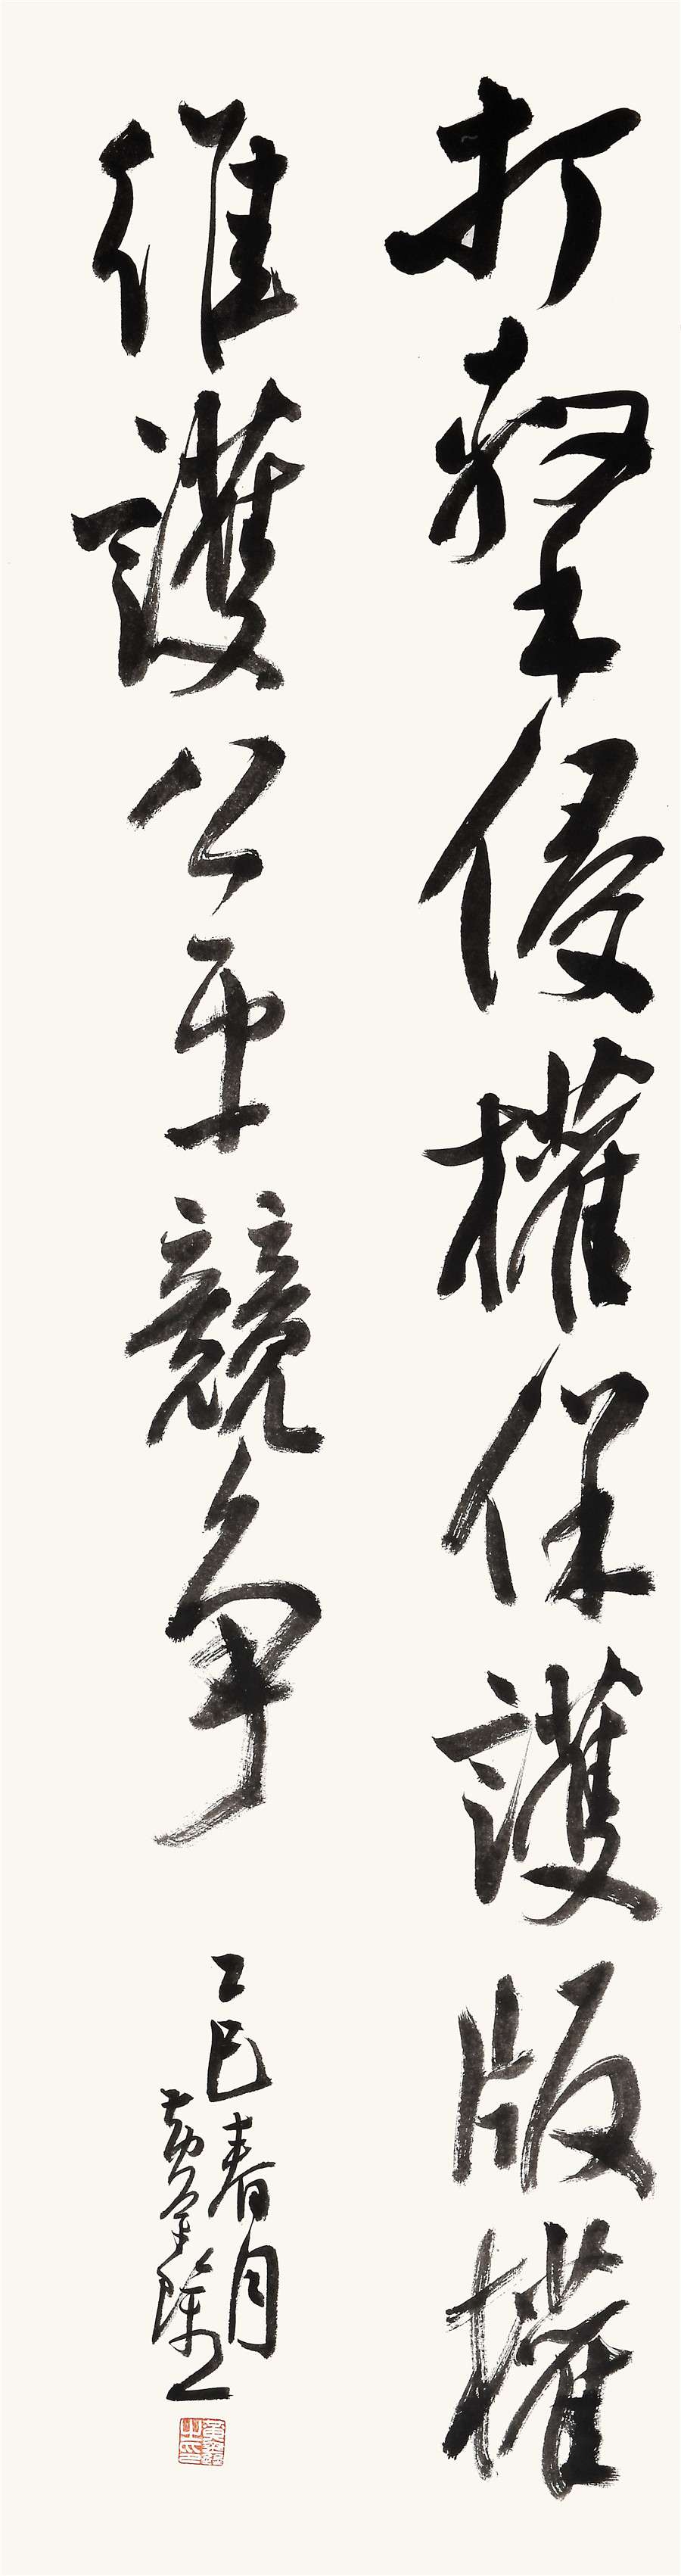 打擊侵權保護版權
維護公平競争
乙巳春月